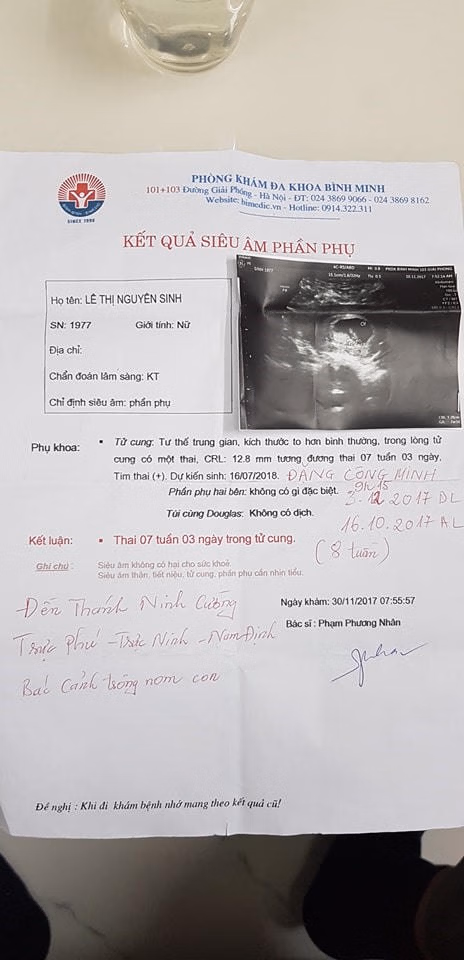 PHÒNG KHÁM ĐA KHOA BÌNH MINH
101+103 Đường Giải Phóng - Hà Nội - ĐT: 024 3869 9066 - 024 3869 8162
Website: bimedic.vn - Hotline: 0914.322.311
SINCE 1998
KẾT QUẢ SIÊU ÂM PHẦN PHỤ
Họ tên: LÊ THỊ NGUYÊN SINH
SN: 1977 Giới tính: Nữ
Địa chỉ:
Chẩn đoán lâm sàng: KT
Chỉ định siêu âm: phần phụ
SINH 1977
Phụ khoa: • Tử cung: Tư thế trung gian, kích thước to hơn bình thường, trong lòng tử
cung có một thai, CRL: 12.8 mm tương đương thai 07 tuần 03 ngày,
Tim thai (+). Dự kiến sinh: 16/07/2018. ĐẶNG CÔNG MINH
Phần phụ hai bên: không có gì đặc biệt. 9h15
3.12 2017 DL
Túi cùng Douglas: Không có dịch.
16.10.2017 AL
Kết luận: • Thai 07 tuần 03 ngày trong tử cung.
(8 tuần)
Ghi chú : Siêu âm không có hại cho sức khoẻ.
Siêu âm thận, tiết niệu, tử cung, phần phụ cần nhịn tiểu.
Đền Thánh Ninh Cường
Trực Phú - Trực Ninh - Nam Định
Bác Cảnh trông nom con
Ngày khám: 30/11/2017 07:55:57
Bác sĩ : Phạm Phương Nhân
Đề nghị : Khi đi khám bệnh nhớ mang theo kết quả cũ!